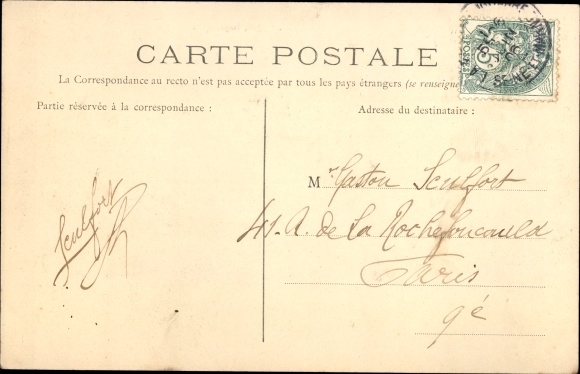 CARTE POSTALE
La Correspondance au recto n'est pas acceptée par tous les pays étrangers (se renseigne
Partie réservée à la correspondance :
Adresse du destinataire :
Mr Gaston Sculfort
41. R. de La Rochefoucauld
Paris
9é
Sculfort